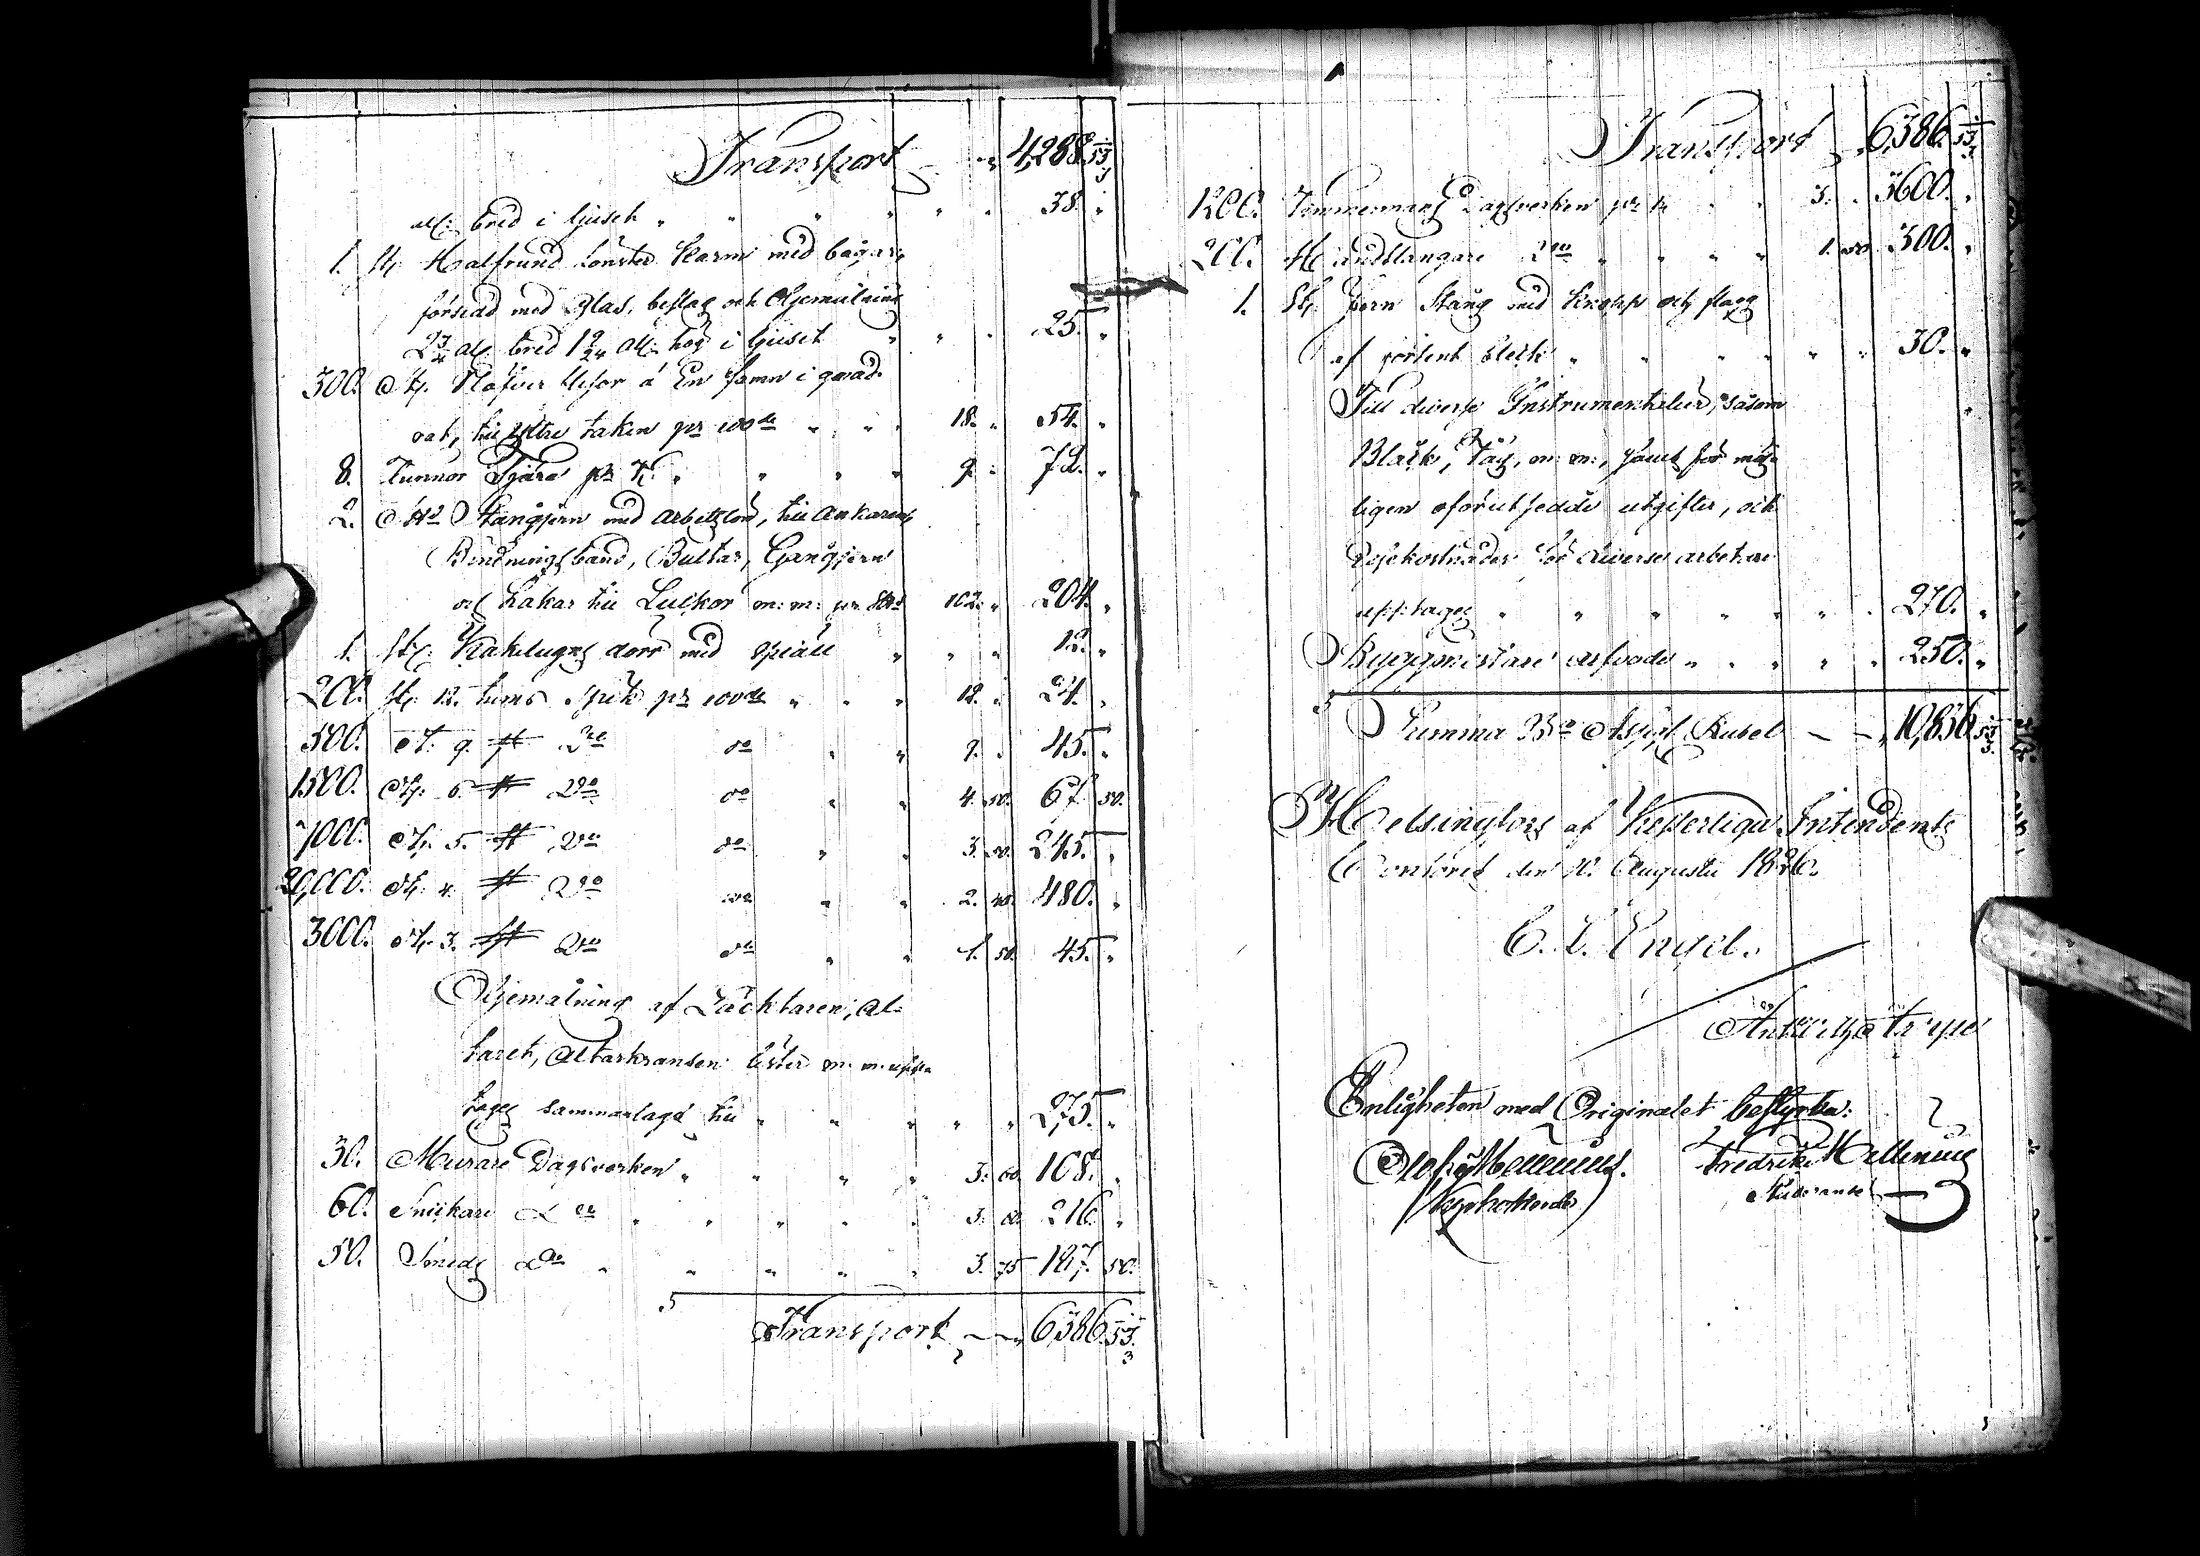 Transport 4,288. 53
al: bred i ljuset " " " " " " 38. "
1. St: Halfrund Fönster Karm med bågar,
försedd med Glas, beslag och Oljemålning
2 3/4 al: bred 1 9/24 al: hög i ljuset " " " 25. "
300. St: Näfver à En famn i qvad-
rat, till yttre taken pr 100de " " 18. " 54. "
8. Tunnor Tjära pr St: " " " " 9. " 72. "
2. Stångjern med arbetslön, till Ankaren,
Bindningsband, Bultar, Gångjern
och Hakar till Luckor m: m: pr 102. " 204. "
1. St: Kakelugns dörr med spiäll " " " 12. "
200. St: 12. tums Spik pr 100de " " " 12. " 24. "
500. St: 9. D:o d:o " " 9. " 45. "
1500. St: 6. D:o d:o " " 4. 50. 67. 50.
7000. St: 5. D:o d:o " " 3. 50. 245. "
20,000. St: 4. D:o d:o " " 2. 40. 480. "
3000. St: 3. D:o d:o " " 1. 50. 45. "
Oljemålning af Läcktaren, Al-
taret, Altarkransen lister m: m: uppt-
tages sammanlagd till " " " " " 275. "
30. Murare Dagsverken " " " " 3. 60. 108. "
60. Snickare D:o " " " " " 3. 60. 216. "
50. Smeds D:o " " " " " 3. 75 187. 50.
Transport 6,586. 53. 3
Transport 6,586. 53. 3
1200. Timmermans Dagsverken pr St " " 3. " 3600. "
200. Handtlangare D:o " " " " 1. 50. 300. "
1. St: Jern Stång med Knopp och flagg
af förtent bleck " " " " " " 30. "
Till diverse Instrumentalier, såsom
Tåg, m: m:, samt för möj-
ligen oförutsedde utgifter, och
Resekostnader för diverse arbetare
upptages " " " " " " 270. "
Byggmästare arfvode " " " " " 250. "
Summa B:co Assign: Rubel 10,836. 53. 3.
Helsingfors af Kejserliga Intendents
Contoret den 10. Augusti 1826.
C. L. Engel.
Enligheten med Originalet bestyrka:
Fredrik Mellenius
Studerande